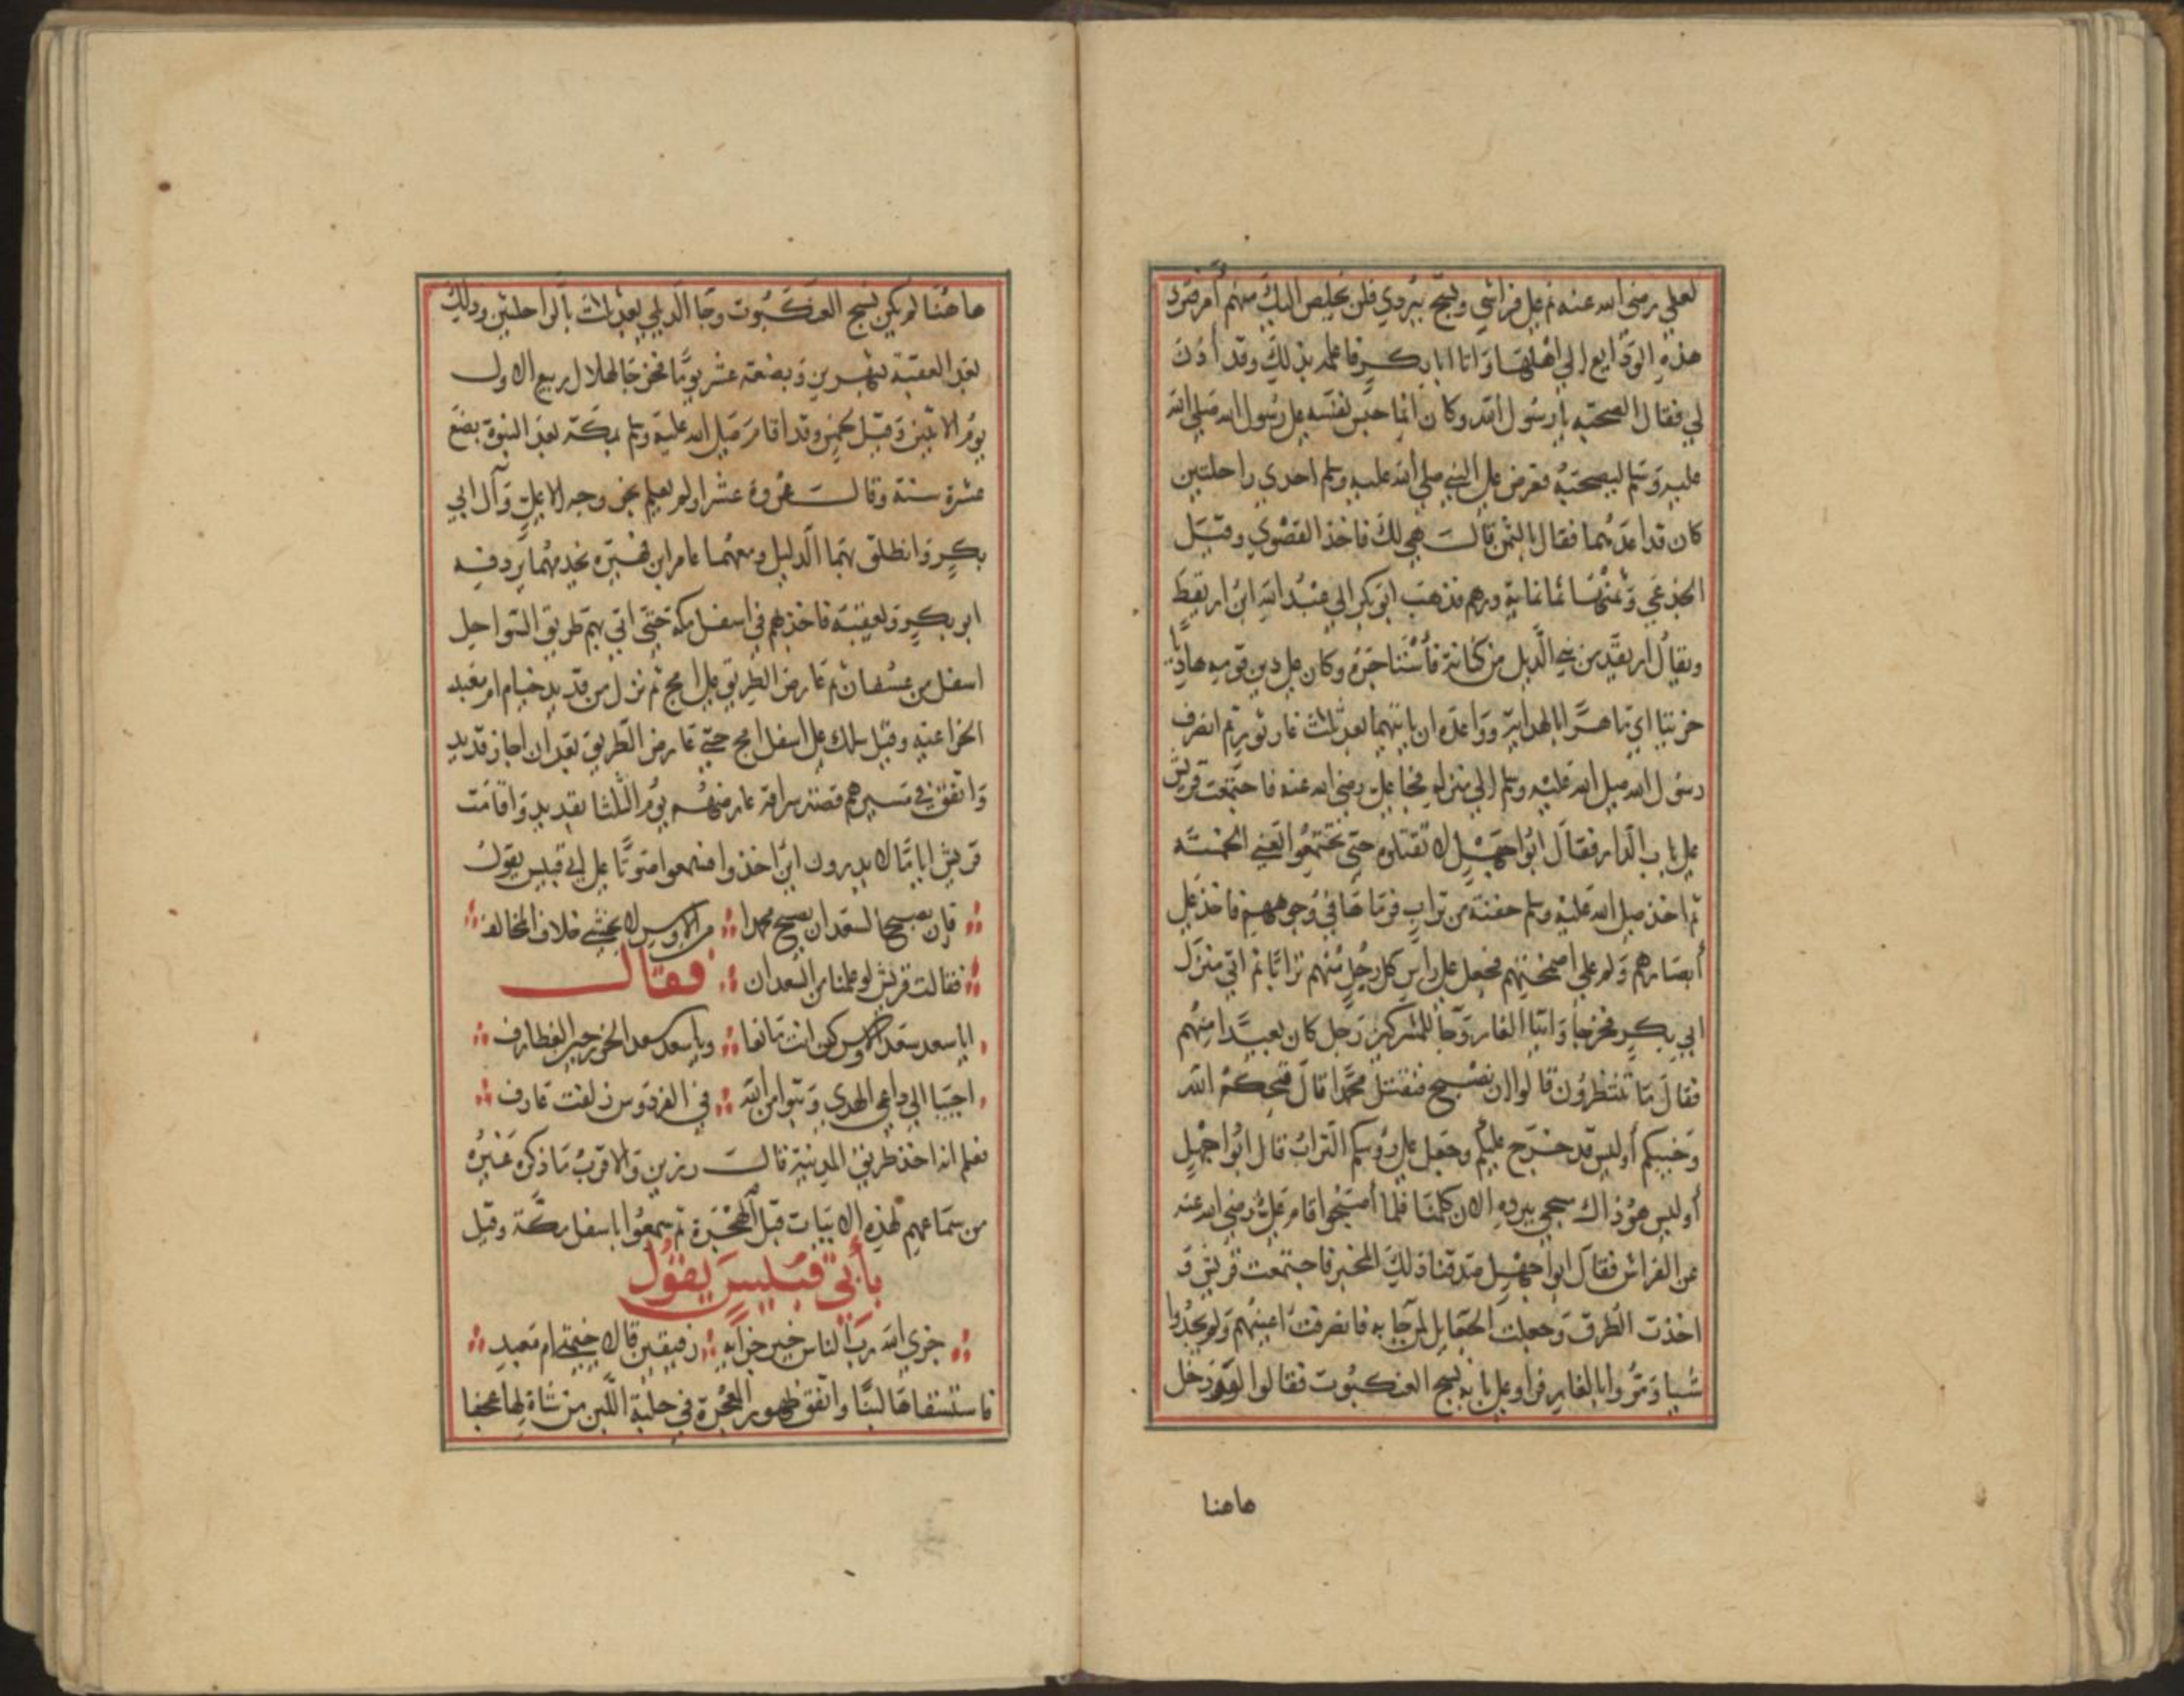 لعلي رضي الله عنه نم على فراشي وتسج ببردي فلن يخلص اليك منهم امر ترد
هذه الودايع الي اهلها واتا ابا بكر فاعلمه بذلك وقد أذن
لي فقال الصحبة يا رسول الله وكان انما حبس نفسه على رسول الله صلى الله
عليه وسلم ليصحبه فعرض على النبي صلى الله عليه وسلم احدي راحلتين
كان قد اعدهما فقال بالثمن قالت هي لك فاخذ القصوي وقيل
الجذعي وثمنها ثمانماية درهم فذهب ابو بكر الي عبد الله ابن اريقط
ويقال اريقد من بني الديل من كنانة فاستاجره وكان على دين قومه هاديا
خريتا اي ماهرا بالهداية وواعده ان ياتيهما بعد ثلث غار ثور ثم انصرف
رسول الله صلى الله عليه وسلم الي منزله فجا علي رضي الله عنه فاجتمعت قريش
على باب الدار فقال ابوا جهل لا تقتلوه حتى تجتمعوا يعني الخمسة
ثم اخذ صلى الله عليه وسلم حفنة من تراب فرماها في وجوههم فاخذ على
أبصارهم ولم علي اصمختهم فجعل على راس كل رجل منهم ترابا ثم اتي منزل
ابي بكر فخرجا واتيا الغار وجا للمشركين رجل كان بعيدا منهم
فقال ما تنتظرون قالوا ان نصبح فنقتل محمدا قال قبحكم الله
وخيبكم أوليس قد خرج عليكم وجعل على رؤسكم التراب قال ابوا جهل
أوليس هو ذاك سجي ببرده الان كلمنا فلما أصبحوا قام علي رضي الله عنه
عن الفراش فقال ابوا جهل صدقنا ذلك المخبر فاجتمعت قريش و
اخذت الطرق وجعلت الجعايل لمن جا به فانصرفت اعينهم ولم يجدوا
شيا ومروا بالغار فراو على بابه نسج العنكبوت فقالوا لو دخل
هاهنا
هاهنا لم يكن نسج العنكبوت وجا الديلي بعد ثلاث بالراحلتين وذلك
بعد العقبة بشهرين وبضعة عشر يوما فخرجا لهلال ربيع الاول
يوم الاثنين وقيل الخميس وقد اقام صلى الله عليه وسلم بمكة بعد النبوة بضع
عشرة سنة وقالت عروة عشرا ولم يعلم بخروجه الا علي وآل ابي
بكر وانطلق بهما الدليل ومعهما عامر ابن فهيرة يخدمهما يردفه
ابو بكر ويعقبه فاخذ بهم في اسفل مكة حتى اتي بهم طريق السواحل
اسفل من عسفان ثم عارض الطريق على امج ثم نزل من قديد خيام ام معبد
الخزاعية وقيل سلك على اسفل امج حتى عارض الطريق بعد ان اجاز قديد
واتفق في مسيرهم قصة سراقة عارضهم يوم الثلثا بقديد واقامت
قريش اياما لا يدرون اين اخذوا فسمعوا صوتا على ابي قبيس يقول
فإن يصبح السعدان يصبح محمدا من الاوس لا يخشى خلاف المخالف
فقالت قريش لو علمنا من السعدان فقال
ايا سعد سعد الاوس كن انت مانعا ويا سعد سعد الخزرجين الغطارف
اجيبا الي داعي الهدي وتبوا من الله في الفردوس زلفت عارف
فعلم انه اخذ طريق المدينة قالت رزين والاقرب ما ذكره غيره
من سماعهم لهذه الابيات قبل الهجرة ثم سمعوا باسفل مكة وقيل
بأبي قبيس يقول
جزي الله رب الناس خير جزايه رفيقين قالا خيمتي ام معبد
فاستسقاها لبنا واتفق ظهور المعجزة في حلبة اللبن من شاة لها عجفا